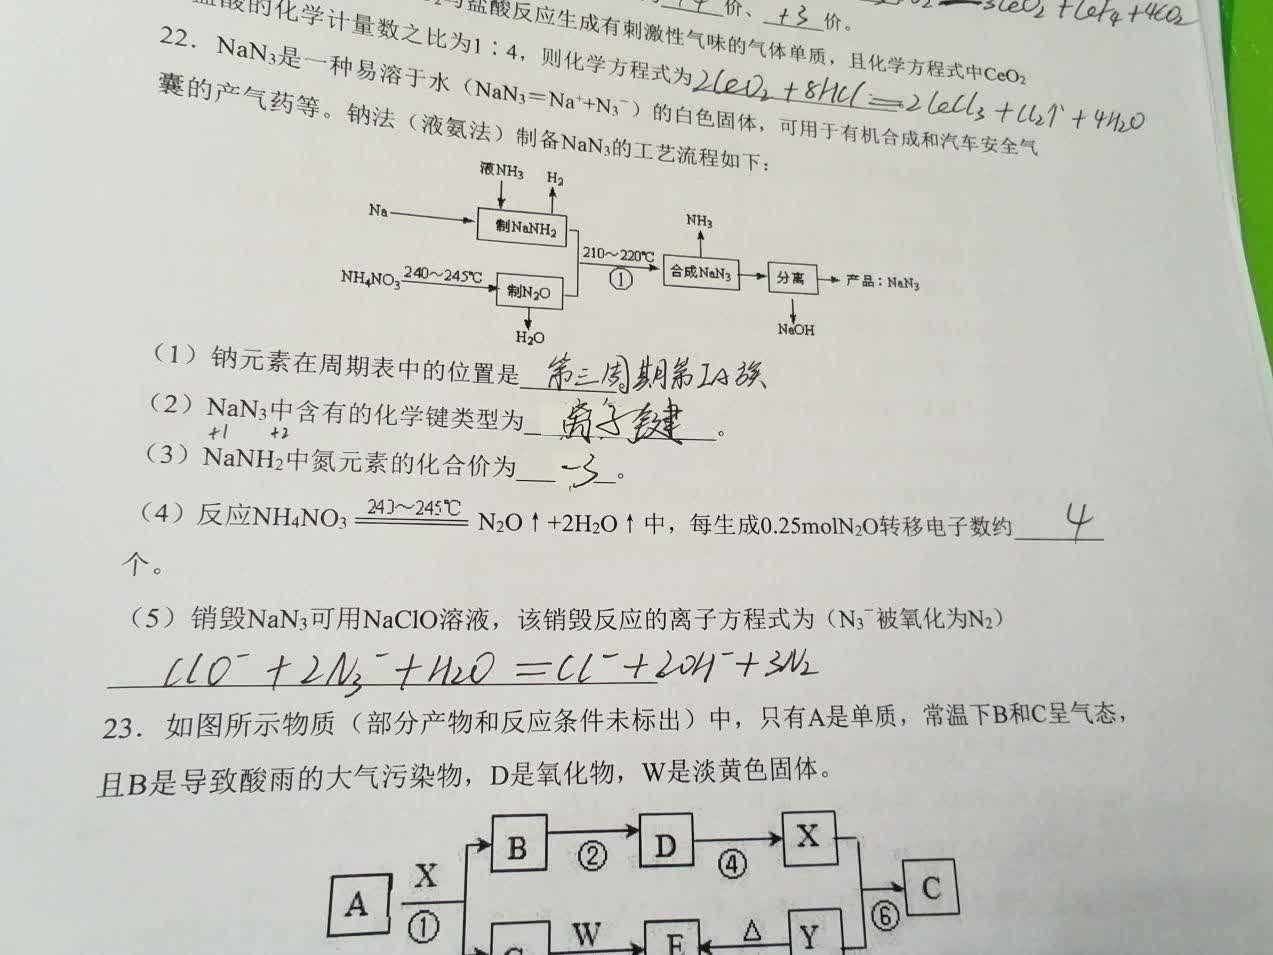 价、+3价。
与盐酸反应生成有刺激性气味的气体单质，且化学方程式中CeO₂
盐酸的化学计量数之比为1：4，则化学方程式为2CeO₂+8HCl=2CeCl₃+Cl₂↑+4H₂O
22．NaN₃是一种易溶于水（NaN₃=Na⁺+N₃⁻）的白色固体，可用于有机合成和汽车安全气
囊的产气药等。钠法（液氨法）制备NaN₃的工艺流程如下：
液NH₃ H₂
Na 制NaNH₂ NH₃
210～220℃
① 合成NaN₃ 分离 产品：NaN₃
NH₄NO₃ 240～245℃ 制N₂O
H₂O NaOH
（1）钠元素在周期表中的位置是 第三周期第IA族
（2）NaN₃中含有的化学键类型为 离子键 。
+1 +2
（3）NaNH₂中氮元素的化合价为 -3 。
（4）反应NH₄NO₃ 240～245℃ N₂O↑+2H₂O↑中，每生成0.25molN₂O转移电子数约 4
个。
（5）销毁NaN₃可用NaClO溶液，该销毁反应的离子方程式为（N₃⁻被氧化为N₂）
ClO⁻+2N₃⁻+H₂O=Cl⁻+2OH⁻+3N₂
23．如图所示物质（部分产物和反应条件未标出）中，只有A是单质，常温下B和C呈气态，
且B是导致酸雨的大气污染物，D是氧化物，W是淡黄色固体。
B ② D ④ X
A X ① ⑥ C
W E △ Y